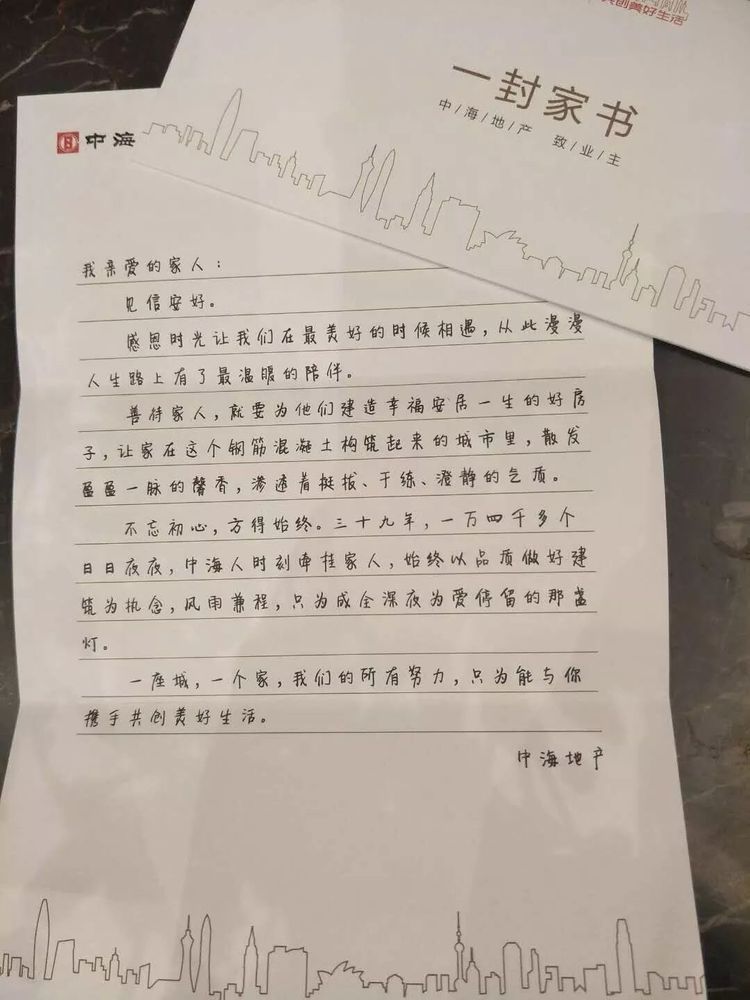 共创美好生活
一封家书
中/海/地/产 致/业/主
中海
我亲爱的家人：
见信安好。
感恩时光让我们在最美好的时候相遇，从此漫漫
人生路上有了最温暖的陪伴。
善待家人，就要为他们建造幸福安居一生的好房
子，让家在这个钢筋混凝土构筑起来的城市里，散发
盈盈一脉的馨香，渗透着挺拔、干练、澄静的气质。
不忘初心，方得始终。三十九年，一万四千多个
日日夜夜，中海人时刻牵挂家人，始终以品质做好建
筑为执念，风雨兼程，只为成全深夜为爱停留的那盏
灯。
一座城，一个家，我们的所有努力，只为能与你
携手共创美好生活。
中海地产